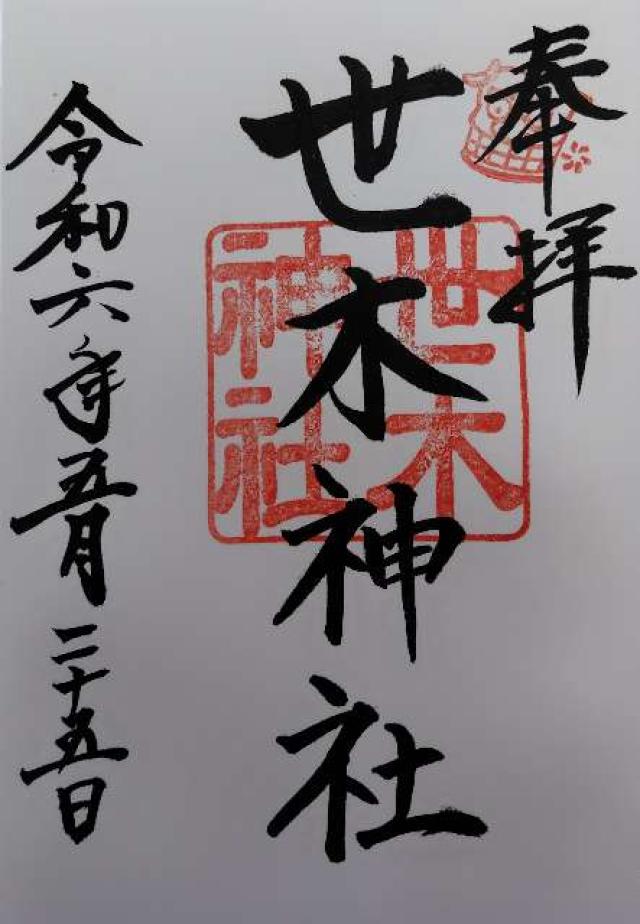 奉拝
世木神社
世木神社
令和六年五月二十五日